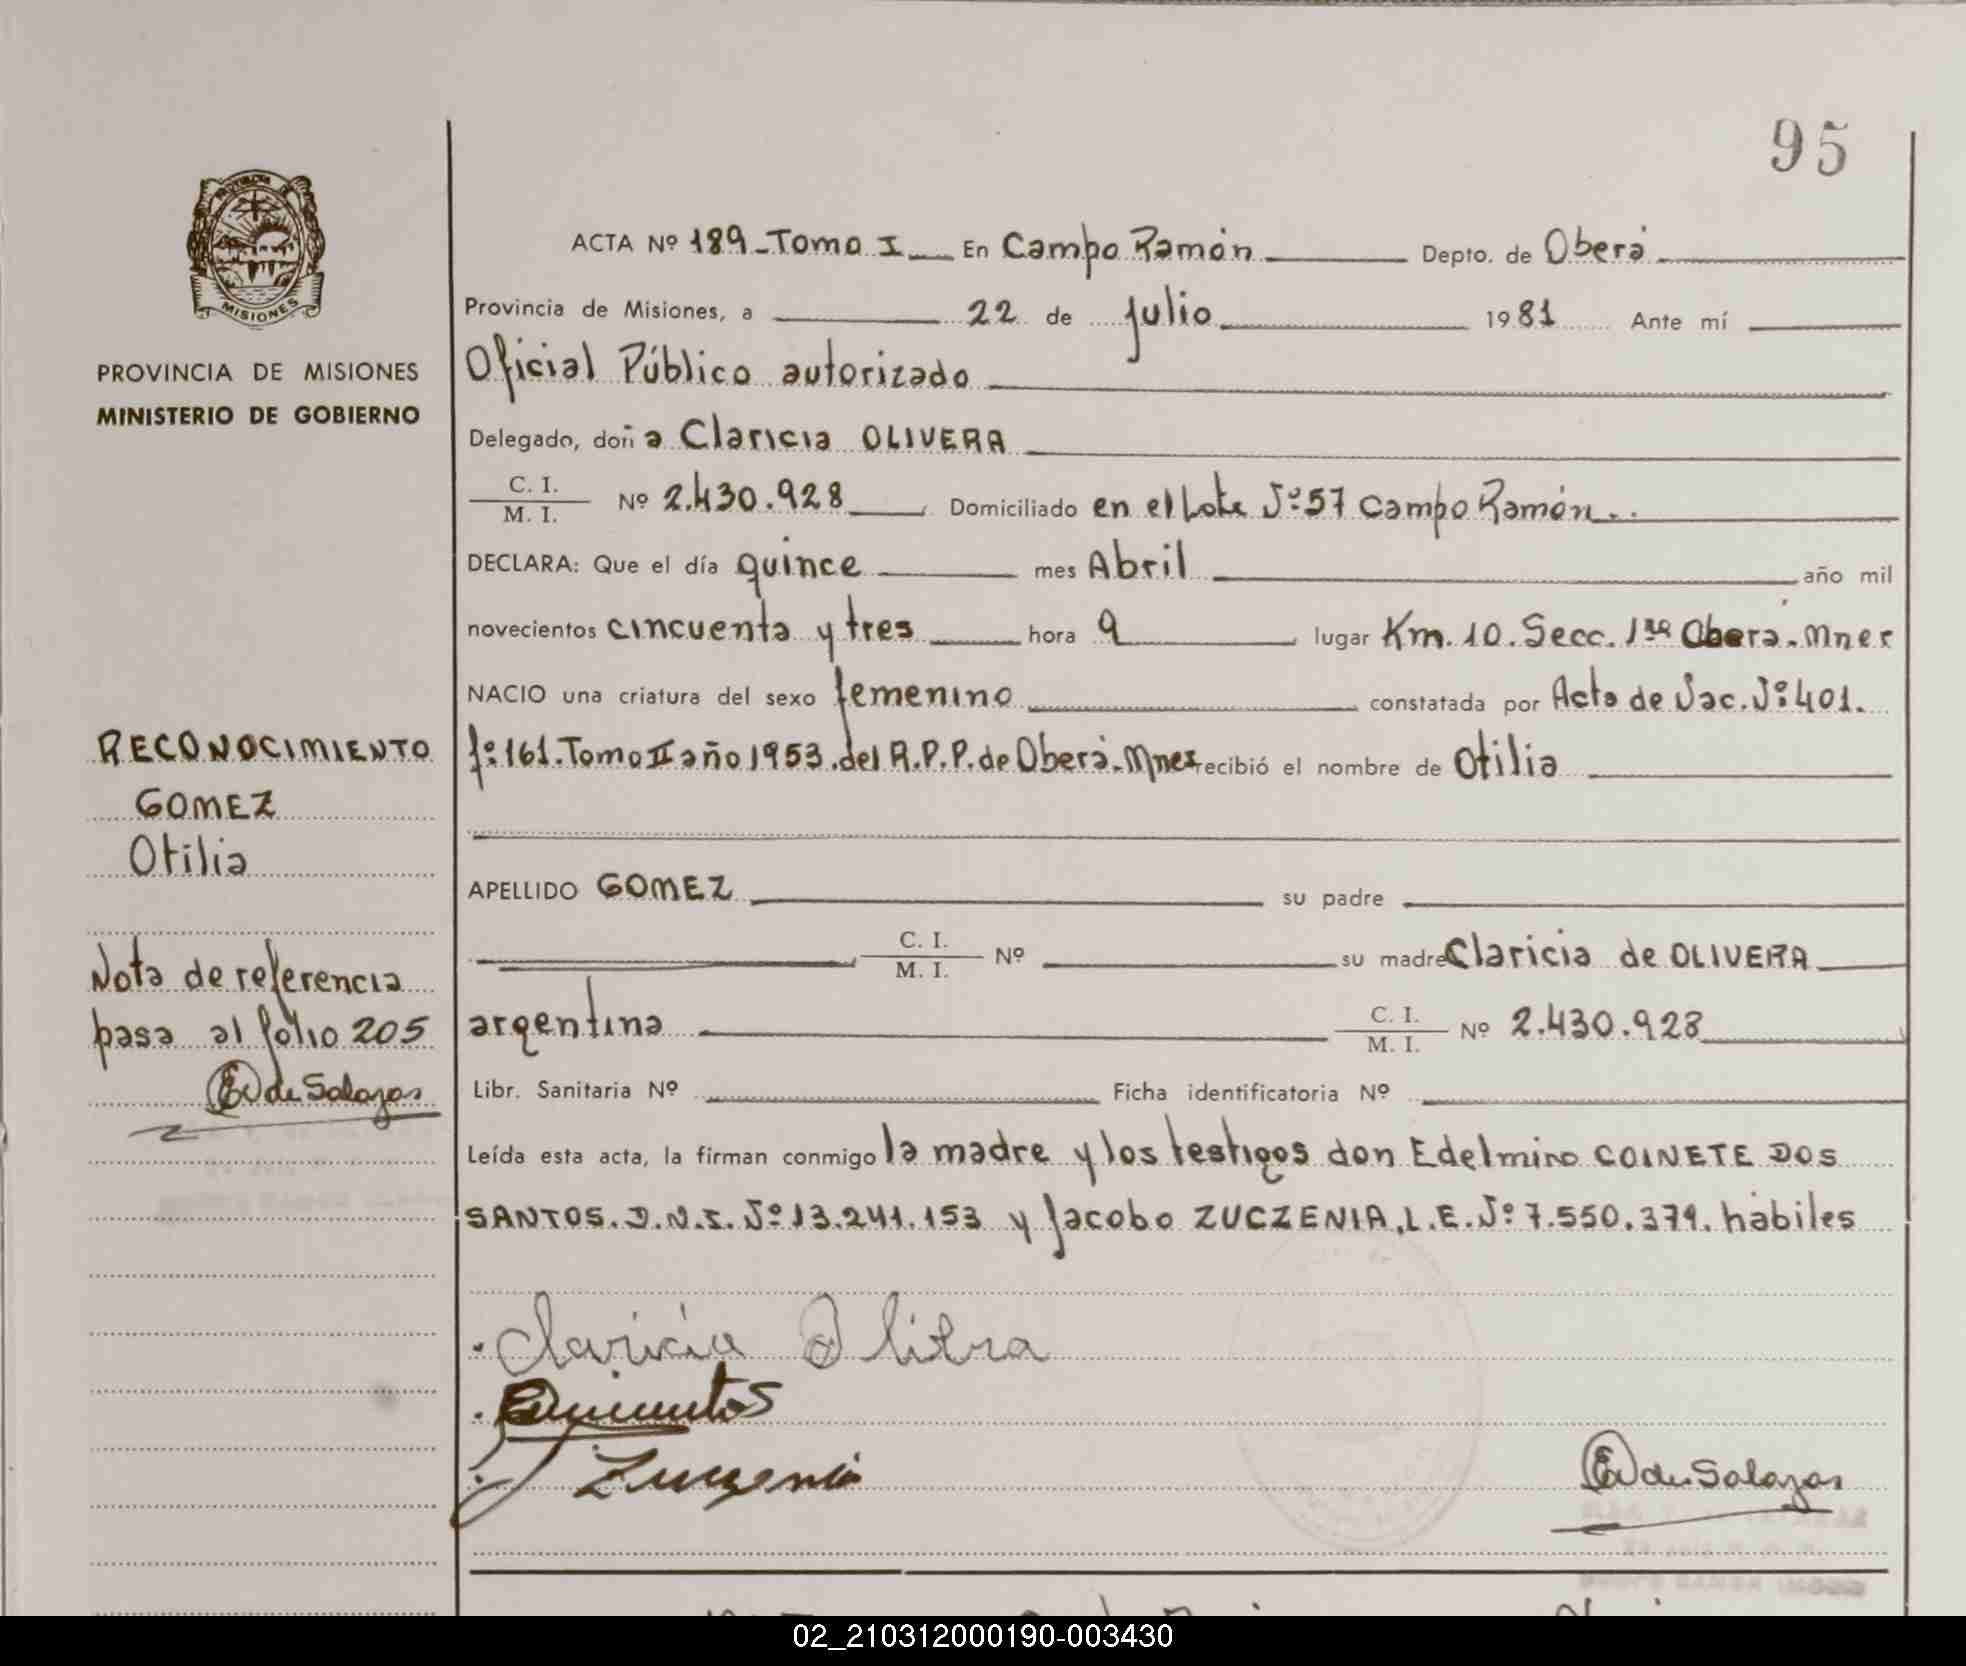 95
PROVINCIA DE
MISIONES
PROVINCIA DE MISIONES
MINISTERIO DE GOBIERNO
ACTA Nº 189-Tomo I En Campo Ramón Depto. de Oberá
Provincia de Misiones, a 22 de Julio 1981 Ante mí
Oficial Público autorizado
Delegado, doña Claricia OLIVERA
C. I.
M. I. Nº 2.430.928 Domiciliado en el Lote Nº 57 Campo Ramón..
DECLARA: Que el día quince mes Abril año mil
novecientos cincuenta y tres hora 9 lugar Km. 10. Secc. 1ra Oberá. Mnes
NACIO una criatura del sexo femenino constatada por Acta de Nac. Nº 401.
fº 161. Tomo II año 1953. del R.P.P. de Oberá. Mnes recibió el nombre de Otilia
APELLIDO GOMEZ su padre
C. I.
M. I. Nº su madre Claricia de OLIVERA
argentina C. I.
M. I. Nº 2.430.928
Libr. Sanitaria Nº Ficha identificatoria Nº
Leída esta acta, la firman conmigo la madre y los testigos don Edelmiro COINETE DOS
SANTOS. D.N.I. Nº 13.241.153 y Jacobo ZUCZENIA, L.E. Nº 7.550.379. hábiles
Claricia Olivra
Zuczenia
de Salazar
RECONOCIMIENTO
GOMEZ
Otilia
Nota de referencia
pasa al folio 205
de Salazar
02_210312000190-003430